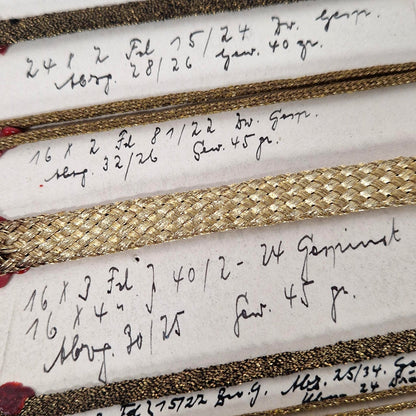 24 x 2 Fd 15/24 Zw. Gesp.
Abzg. 28/26 Gew. 40 gr.
16 x 2 Fd 81/22 Zw. Gesp.
Abzg. 32/26 Gew. 45 gr.
16 x 3 Fd } 40/2 - 24 Gespinst
16 x 4 " }
Abzg. 30/25 Gew. 45 gr.
Fd 315/22 Zw. G. Abz. 25/34. G
24